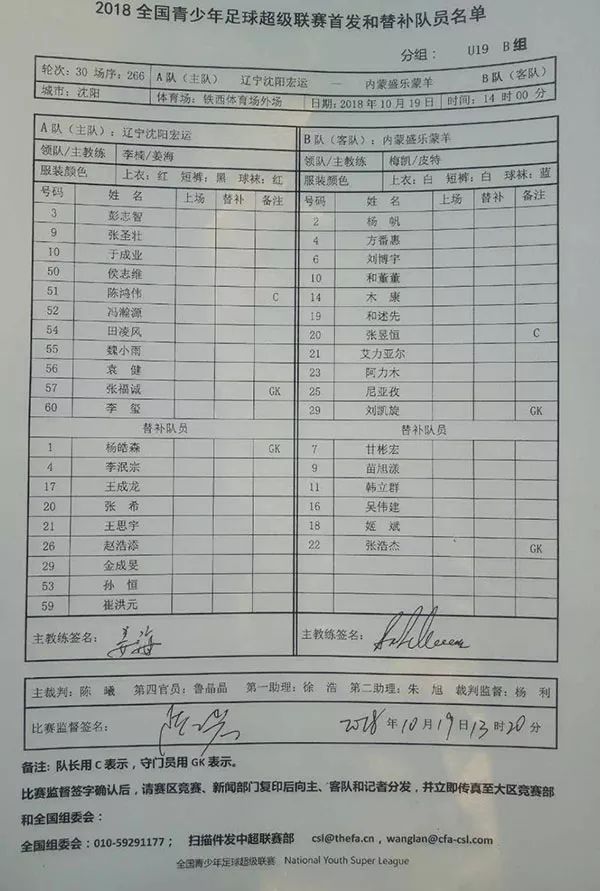 2018 全国青少年足球超级联赛首发和替补队员名单
分组： U19 B组
轮次：30 场序：266 A 队（主队） 辽宁沈阳宏运 — 内蒙盛乐蒙羊 B 队（客队）
城市：沈阳 体育场：铁西体育场外场 日期：2018 年 10 月 19 日 时间：14 时 00 分
A 队（主队）：辽宁沈阳宏运 B 队（客队）：内蒙盛乐蒙羊
领队/主教练 李楠/姜海 领队/主教练 梅凯/皮特
服装颜色 上衣：红 短裤：黑 球袜：红 服装颜色 上衣：白 短裤：白 球袜：蓝
号码 姓 名 上场 替补 备注 号码 姓 名 上场 替补 备注
3 彭志智 2 杨 帆
9 张圣壮 4 方番惠
10 于成业 6 刘博宇
50 侯志维 10 和董董
51 陈鸿伟 C 14 木 康
52 冯瀚源 19 和述先
54 田凌风 20 张昱恒 C
55 魏小雨 21 艾力亚尔
56 袁 健 23 阿力木
57 张福诚 GK 25 尼亚孜
60 李 玺 29 刘凯旋 GK
替补队员 替补队员
1 杨皓森 GK 7 甘彬宏
4 李泯宗 9 苗旭漾
17 王成龙 11 韩立群
20 张 希 16 吴伟建
21 王思宇 18 姬 斌
26 赵浩添 22 张浩杰 GK
29 金成旻
53 孙 恒
59 崔洪元
主教练签名： 姜海 主教练签名：
主裁判：陈 曦 第四官员：鲁晶晶 第一助理：徐 浩 第二助理：朱 旭 裁判监督：杨 利
比赛监督签名： 2018 年 10 月 19 日 13 时 20 分
备注：队长用 C 表示，守门员用 GK 表示。
比赛监督签字确认后，请赛区竞赛、新闻部门复印后向主、客队和记者分发，并立即传真至大区竞赛部
和全国组委会：
全国组委会：010-59291177； 扫描件发中超联赛部 csl@thefa.cn，wanglan@cfa-csl.com
全国青少年足球超级联赛 National Youth Super League